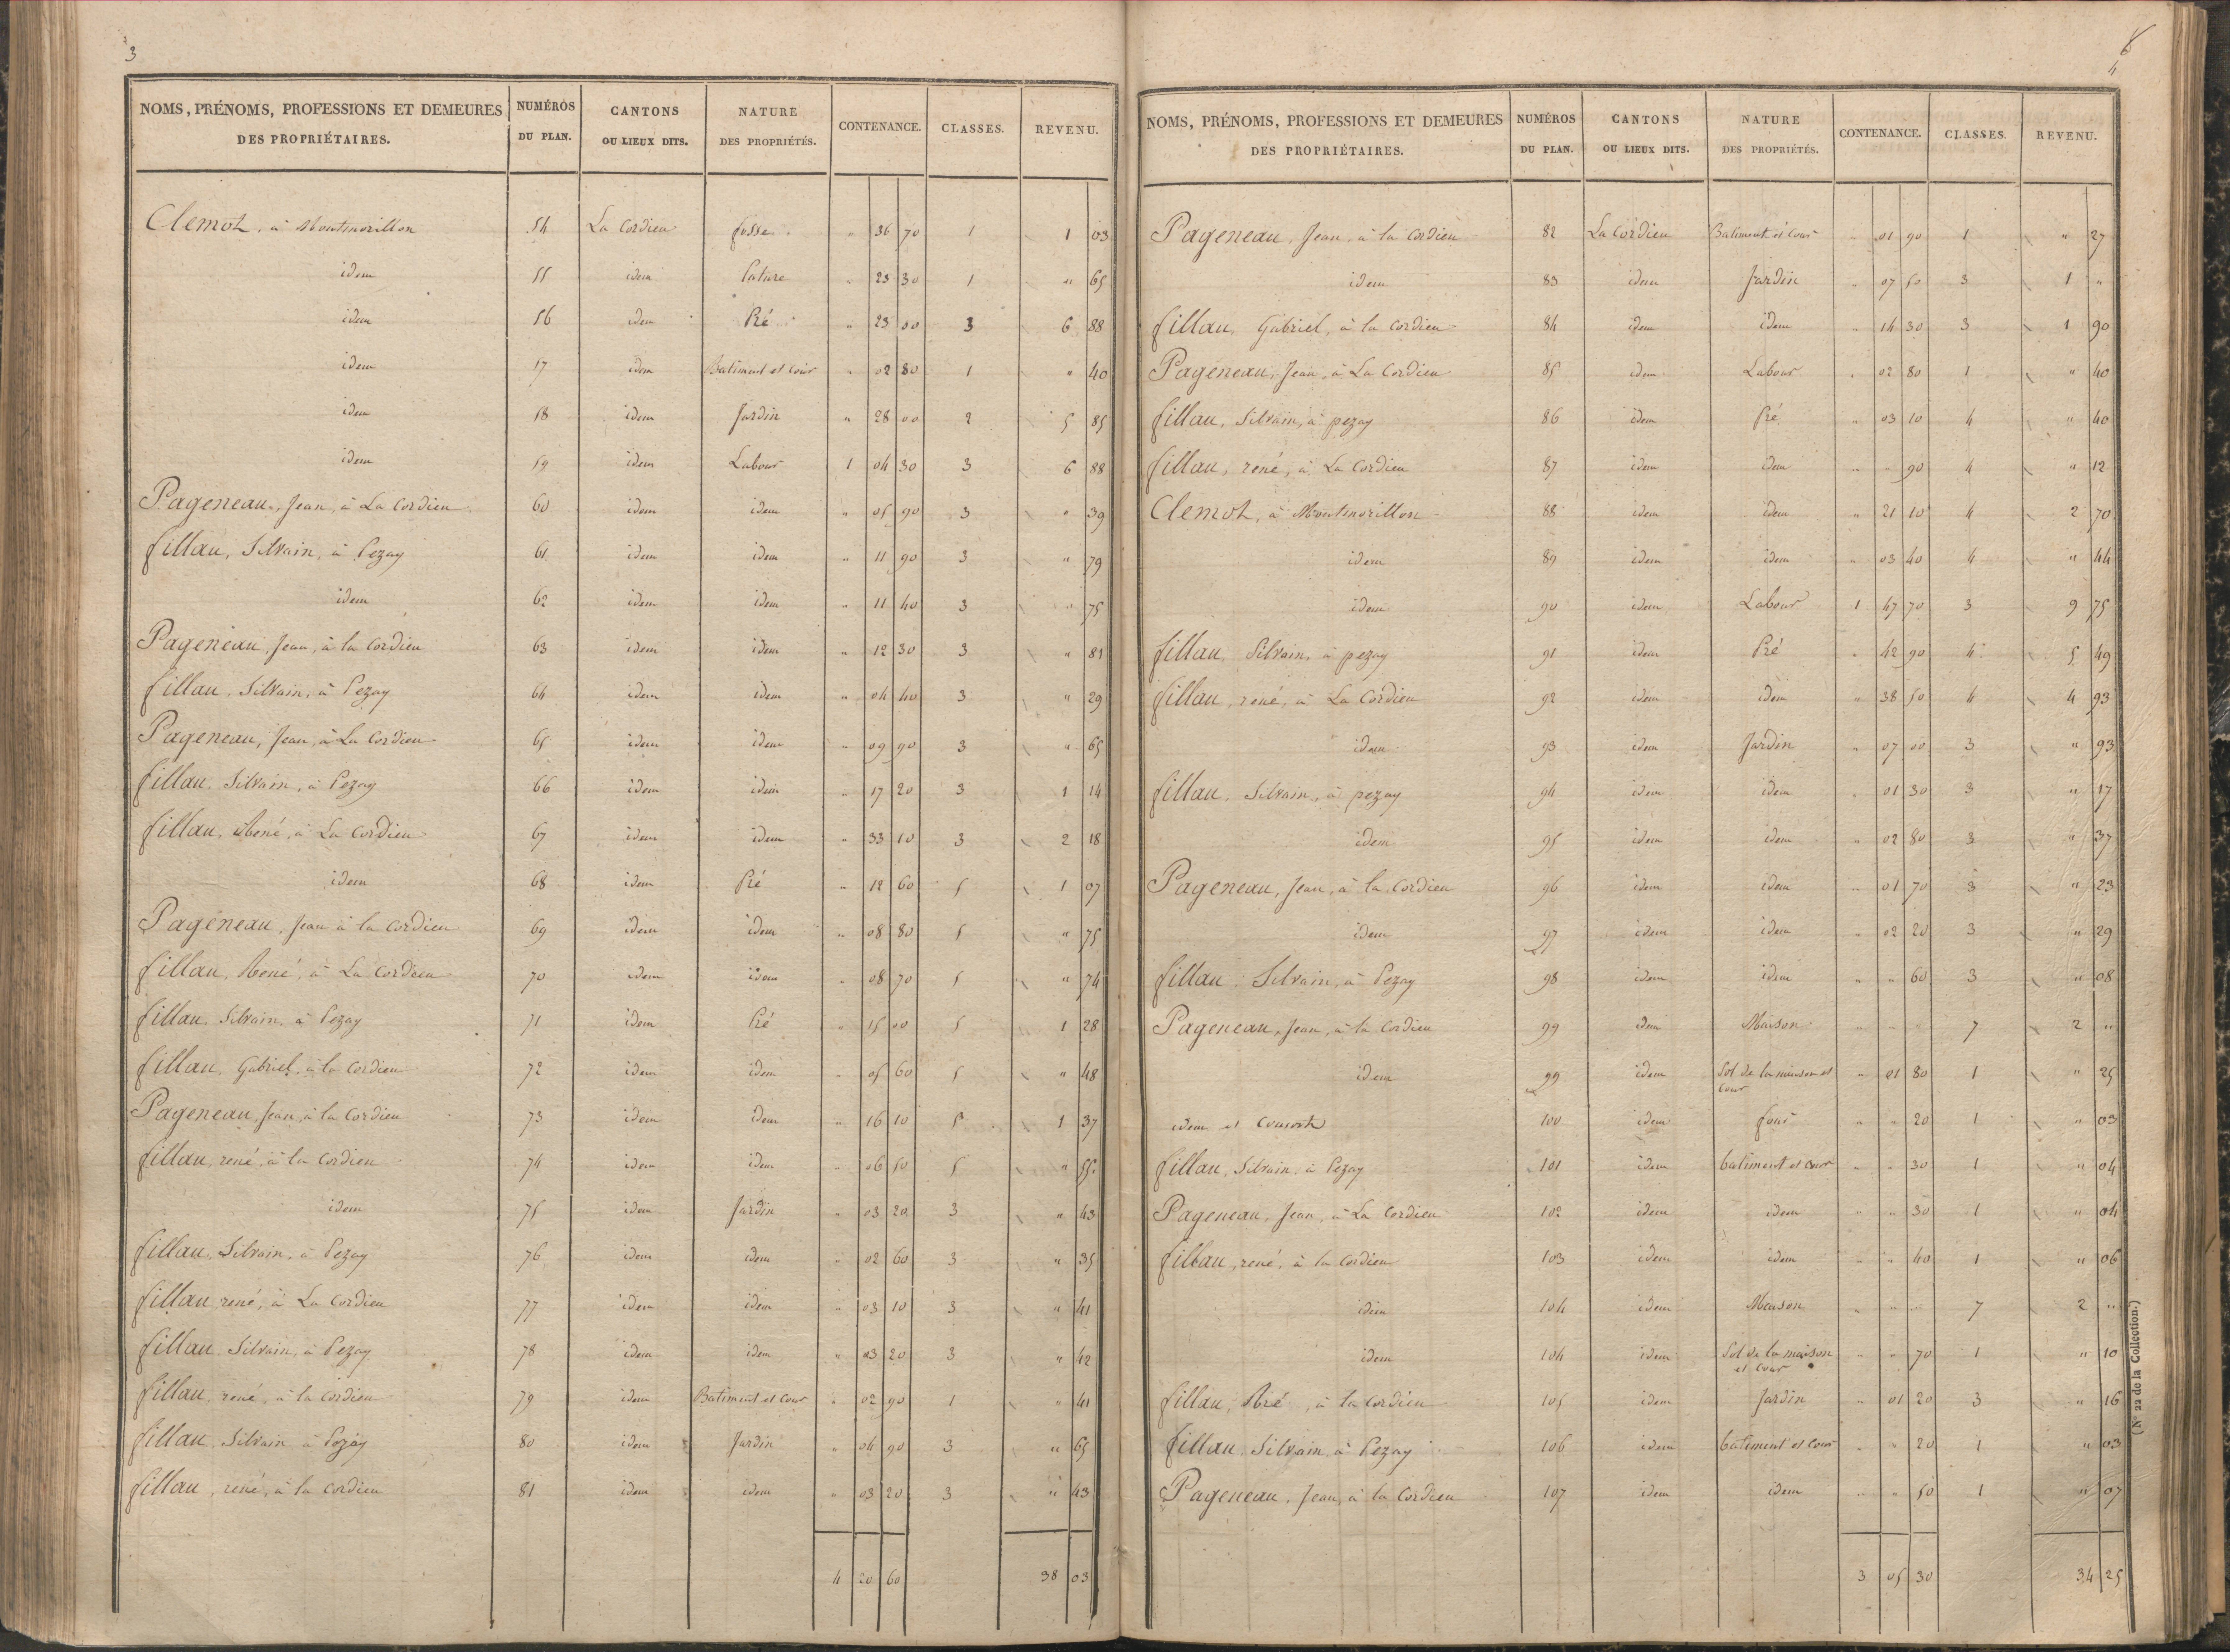 3
NOMS, PRÉNOMS, PROFESSIONS ET DEMEURES DES PROPRIÉTAIRES. NUMÉROS DU PLAN. CANTONS OU LIEUX DITS. NATURE DES PROPRIÉTÉS. CONTENANCE. CLASSES. REVENU.
Clemot, à Montmorillon 54 La Cordieu fosse " 36 70 1 1 03
idem 55 idem Pature " 23 30 1 " 65
idem 56 idem Pré " 23 00 3 6 88
idem 57 idem Batiment et Cour " 02 80 1 " 40
idem 58 idem Jardin " 28 00 2 5 85
idem 59 idem Labour 1 04 30 3 6 88
Pageneau, Jean, à La Cordieu 60 idem idem " 05 90 3 " 39
fillau, Silvain, à Pezay 61 idem idem " 11 90 3 " 79
idem 62 idem idem " 11 40 3 " 75
Pageneau, Jean, à la Cordieu 63 idem idem " 12 30 3 " 81
fillau, Silvain, à Pezay 64 idem idem " 04 40 3 " 29
Pageneau, Jean, à La Cordieu 65 idem idem " 09 90 3 " 65
fillau, Silvain, à Pezay 66 idem idem " 17 20 3 1 14
fillau, René, à La Cordieu 67 idem idem " 33 10 3 2 18
idem 68 idem Pré " 12 60 5 1 07
Pageneau, Jean à la Cordieu 69 idem idem " 08 80 5 " 75
fillau, René, à La Cordieu 70 idem idem " 08 70 5 " 74
fillau, Silvain, à Pezay 71 idem Pré " 15 00 5 1 28
fillau, Gabriel, à la Cordieu 72 idem idem " 05 60 5 " 48
Pageneau, Jean, à la Cordieu 73 idem idem " 16 10 5 1 37
fillau, rené, à la Cordieu 74 idem idem " 06 50 5 " 55
idem 75 idem Jardin " 03 20 3 " 43
fillau, Silvain, à Pezay 76 idem idem " 02 60 3 " 35
fillau, rené, à La Cordieu 77 idem idem " 03 10 3 " 41
fillau, Silvain, à Pezay 78 idem idem " 03 20 3 " 42
fillau, rené, à la Cordieu 79 idem Batiment et Cour " 02 90 1 " 41
fillau, Silvain à Pezay 80 idem Jardin " 04 90 3 " 65
fillau, rené, à la Cordieu 81 idem idem " 03 20 3 " 43
4 20 60 38 03
4
NOMS, PRÉNOMS, PROFESSIONS ET DEMEURES DES PROPRIÉTAIRES. NUMÉROS DU PLAN. CANTONS OU LIEUX DITS. NATURE DES PROPRIÉTÉS. CONTENANCE. CLASSES. REVENU.
Pageneau, Jean, à la Cordieu 82 La Cordieu Batiment et Cour " 01 90 1 " 27
idem 83 idem Jardin " 07 50 3 1 "
fillau, Gabriel, à la Cordieu 84 idem idem " 14 30 3 1 90
Pageneau, Jean, à La Cordieu 85 idem Labour " 02 80 1 " 40
fillau, Silvain, à pezay 86 idem Pré " 03 10 4 " 40
fillau, rené, à La Cordieu 87 idem idem " " 90 4 " 12
Clemot, à Montmorillon 88 idem idem " 21 10 4 2 70
idem 89 idem idem " 03 40 4 " 44
idem 90 idem Labour 1 47 70 3 9 75
fillau, Silvain, à pezay 91 idem Pré " 42 90 4 5 49
fillau, rené, à La Cordieu 92 idem idem " 38 50 4 4 93
idem 93 idem Jardin " 07 00 3 " 93
fillau, Silvain, à pezay 94 idem idem " 01 30 3 " 17
idem 95 idem idem " 02 80 3 " 37
Pageneau, Jean, à la Cordieu 96 idem idem " 01 70 3 " 23
idem 97 idem idem " 02 20 3 " 29
fillau, Silvain, à Pezay 98 idem idem " " 60 3 " 08
Pageneau, Jean, à la Cordieu 99 idem Maison " " " 7 2 "
idem 99 idem Sol de la maison et cour " 01 80 1 " 25
idem et Consorts 100 idem four " " 20 1 " 03
fillau, Silvain, à Pezay 101 idem batiment et cour " " 30 1 " 04
Pageneau, Jean, à La Cordieu 102 idem idem " " 30 1 " 04
fillau, rené, à la Cordieu 103 idem idem " " 40 1 " 06
idem 104 idem Maison " " " 7 2 "
idem 104 idem Sol de la maison et cour " " 70 1 " 10
fillau, , à la Cordieu 105 idem Jardin " 01 20 3 " 16
fillau, Silvain, à Pezay 106 idem batiment et Cour " " 20 1 " 03
Pageneau, Jean, à la Cordieu 107 idem idem " " 50 1 " 07
3 05 30 34 25
(N° 22 de la Collection.)